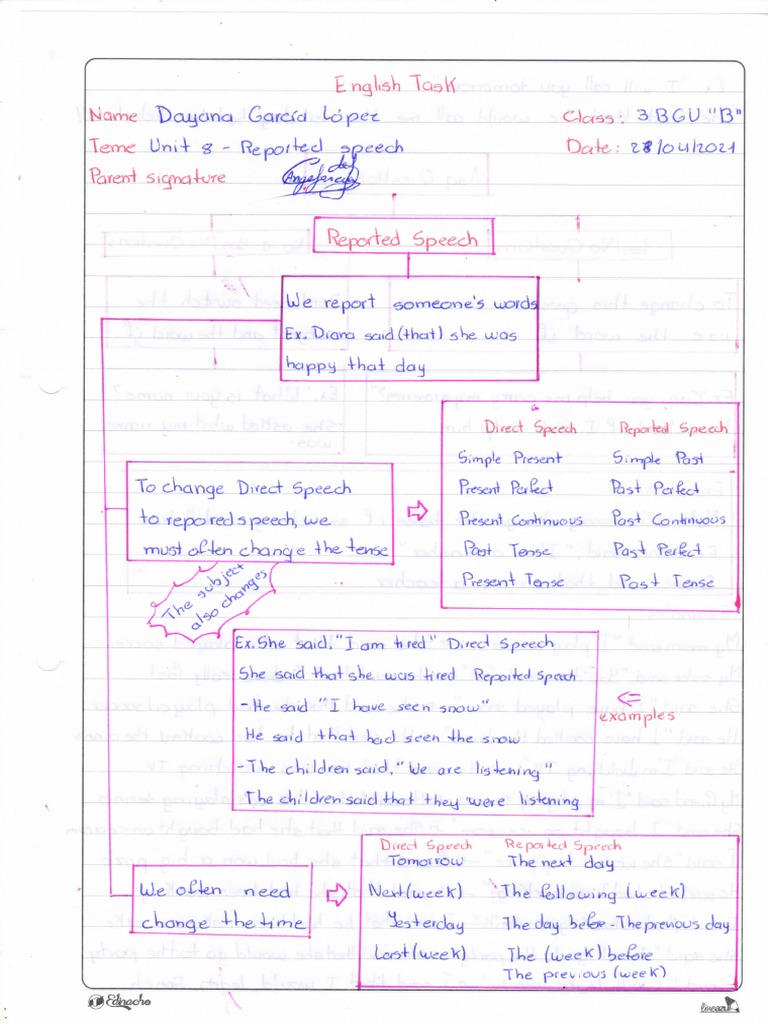 English Task
Name Dayana García López Class: 3 BGU "B"
Teme Unit 8 - Reported speech Date: 28/04/2021
Parent signature
Reported Speech
We report someone's words
Ex. Diana said (that) she was
happy that day
Direct Speech Reported Speech
Simple Present Simple Past
Present Perfect Past Perfect
Present Continuous Past Continuous
Past Tense Past Perfect
Present Tense Past Tense
To change Direct Speech
to repored speech, we
must often change the tense
The subject
also changes
Ex. She said, "I am tired" Direct Speech
She said that she was tired Reported Speech
- He said "I have seen snow"
He said that had seen the snow
- The children said, "We are listening"
The children said that they were listening
⇐
examples
We often need
change the time
Direct Speech Reported Speech
Tomorrow The next day
Next (week) The following (week)
Yesterday The day before - The previous day
Last (week) The (week) before
The previous (week)
Edinacho